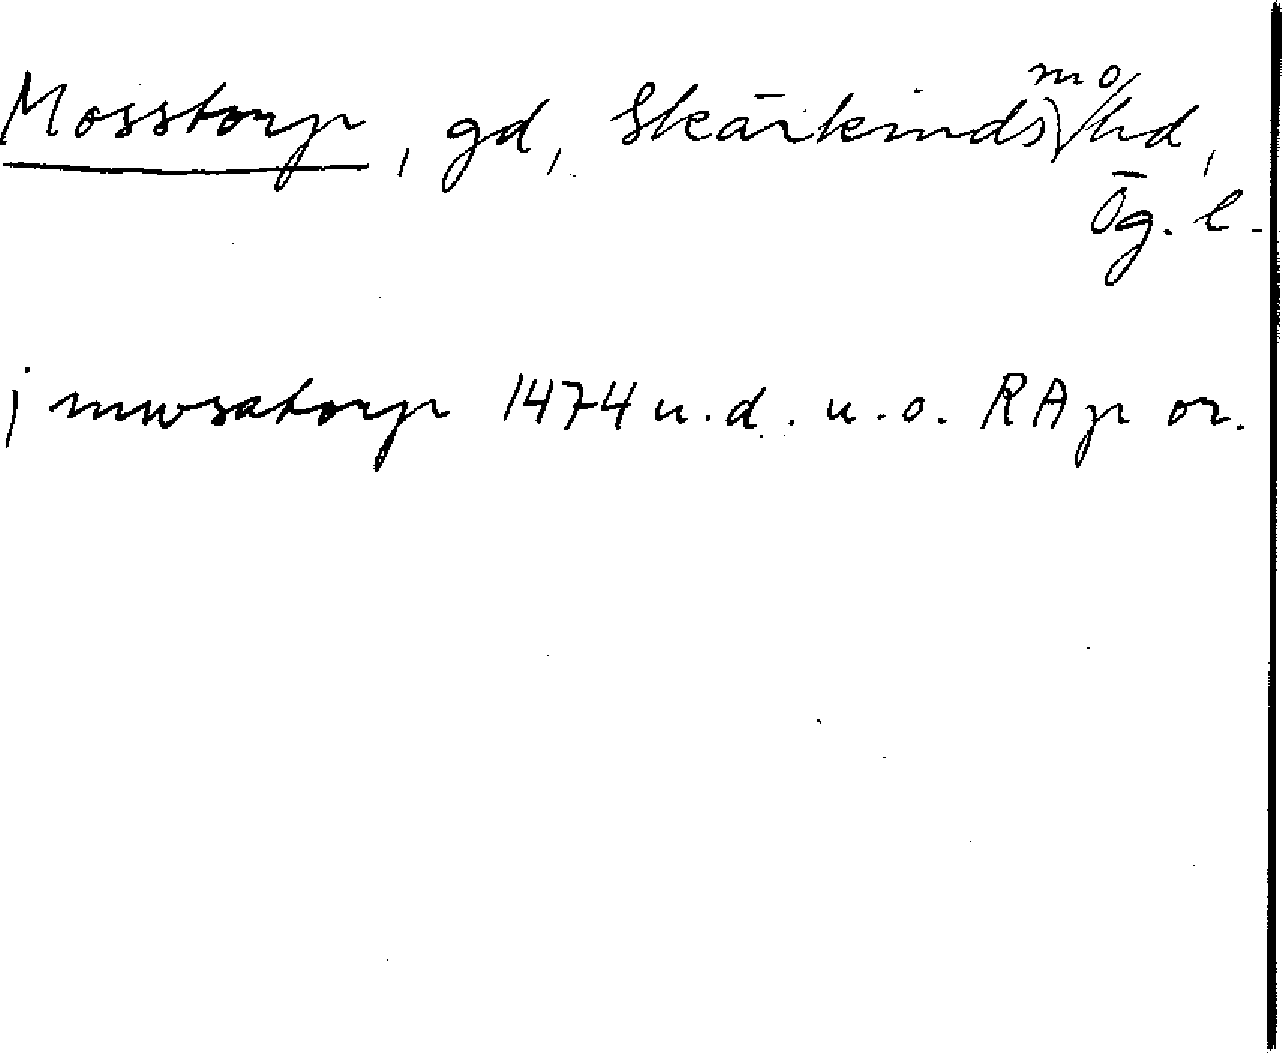 Mosstorp, gd, Skärkinds sn o hd,
Ög. l.
j mwsatorp 1474 u.d. u.o. RAp or.